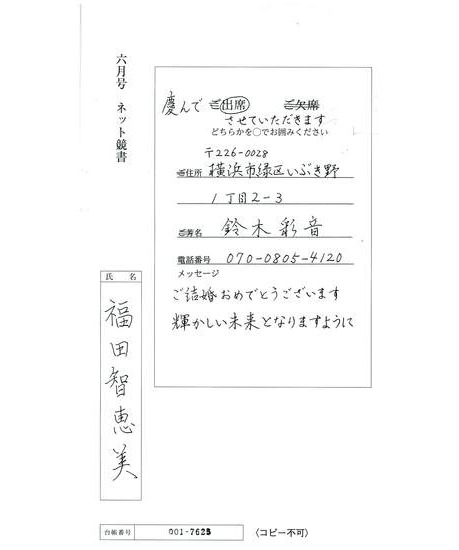 六月号 ネット競書
慶んで ご出席 ご欠席
させていただきます
どちらかを○でお囲みください
〒226-0028
ご住所 横浜市緑区いぶき野
1丁目2-3
ご芳名 鈴木彩音
電話番号 070-0805-4120
メッセージ
ご結婚おめでとうございます
輝かしい未来となりますように
氏名
福田智恵美
台帳番号 001-7625 〈コピー不可〉